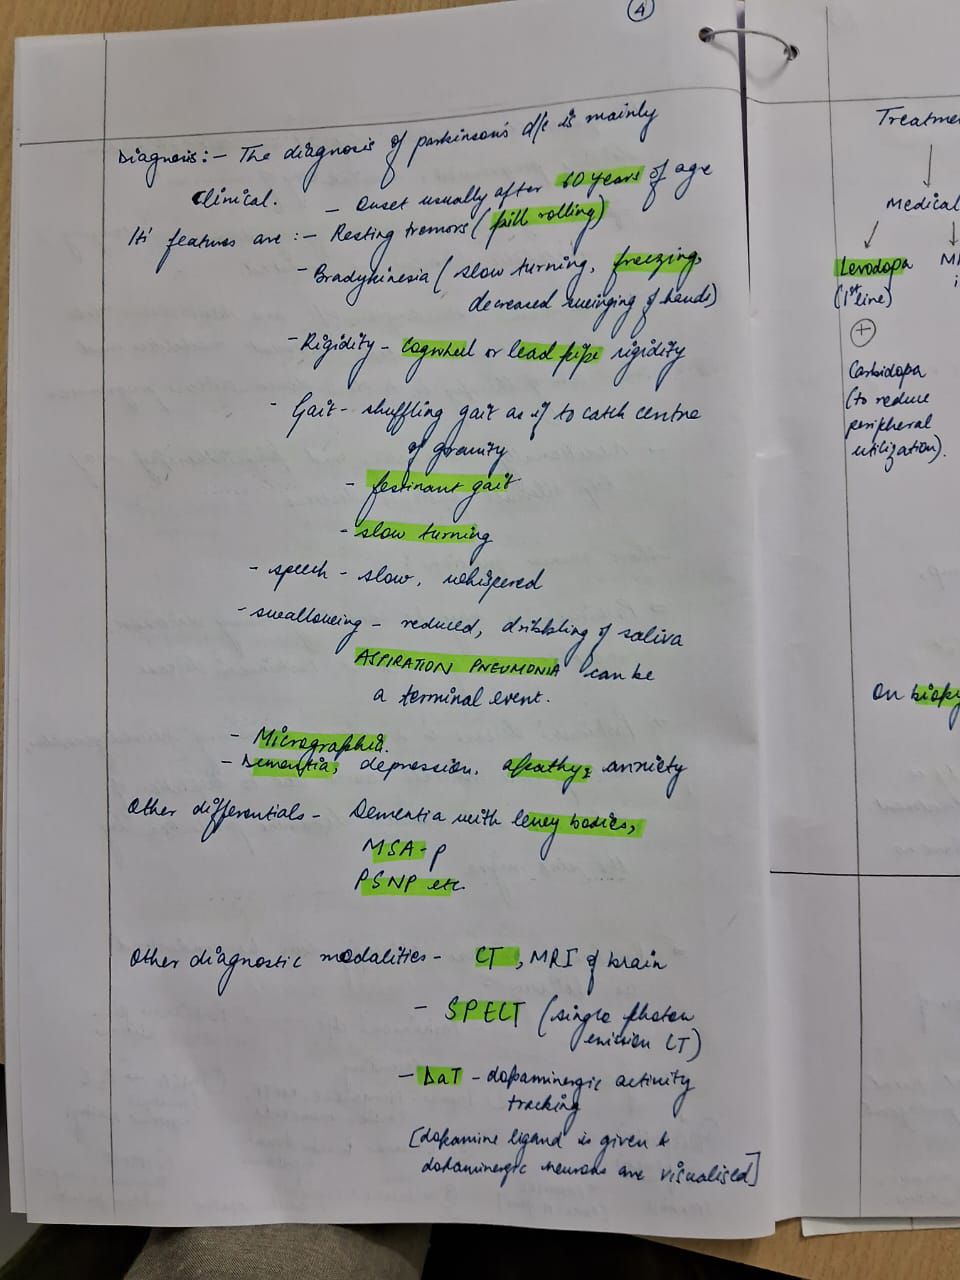 4
Diagnosis:- The diagnosis of parkinson's d/s is mainly
clinical.
- Onset usually after 60 years of age
Its' features are :- Resting tremors (pill rolling)
- Bradykinesia (slow turning, freezing,
decreased swinging of hands)
- Rigidity - Cogwheel or lead pipe rigidity
- Gait - shuffling gait as if to catch centre
of gravity
- festinant gait
- slow turning
- speech - slow, whispered
- swallowing - reduced, dribbling of saliva
ASPIRATION PNEUMONIA can be
a terminal event.
- Micrographia.
- Dementia, depression, apathy, anxiety
Other differentials - Dementia with lewy bodies,
MSA-P
PSNP etc.
Other diagnostic modalities - CT, MRI of brain
- SPECT (single photon
emission CT)
- DaT - dopaminergic activity
tracking
[dopamine ligand is given &
dopaminergic neurons are visualised]
Medical
Levodopa
(1st line)
+
Carbidopa
(to reduce
peripheral
utilization).
On